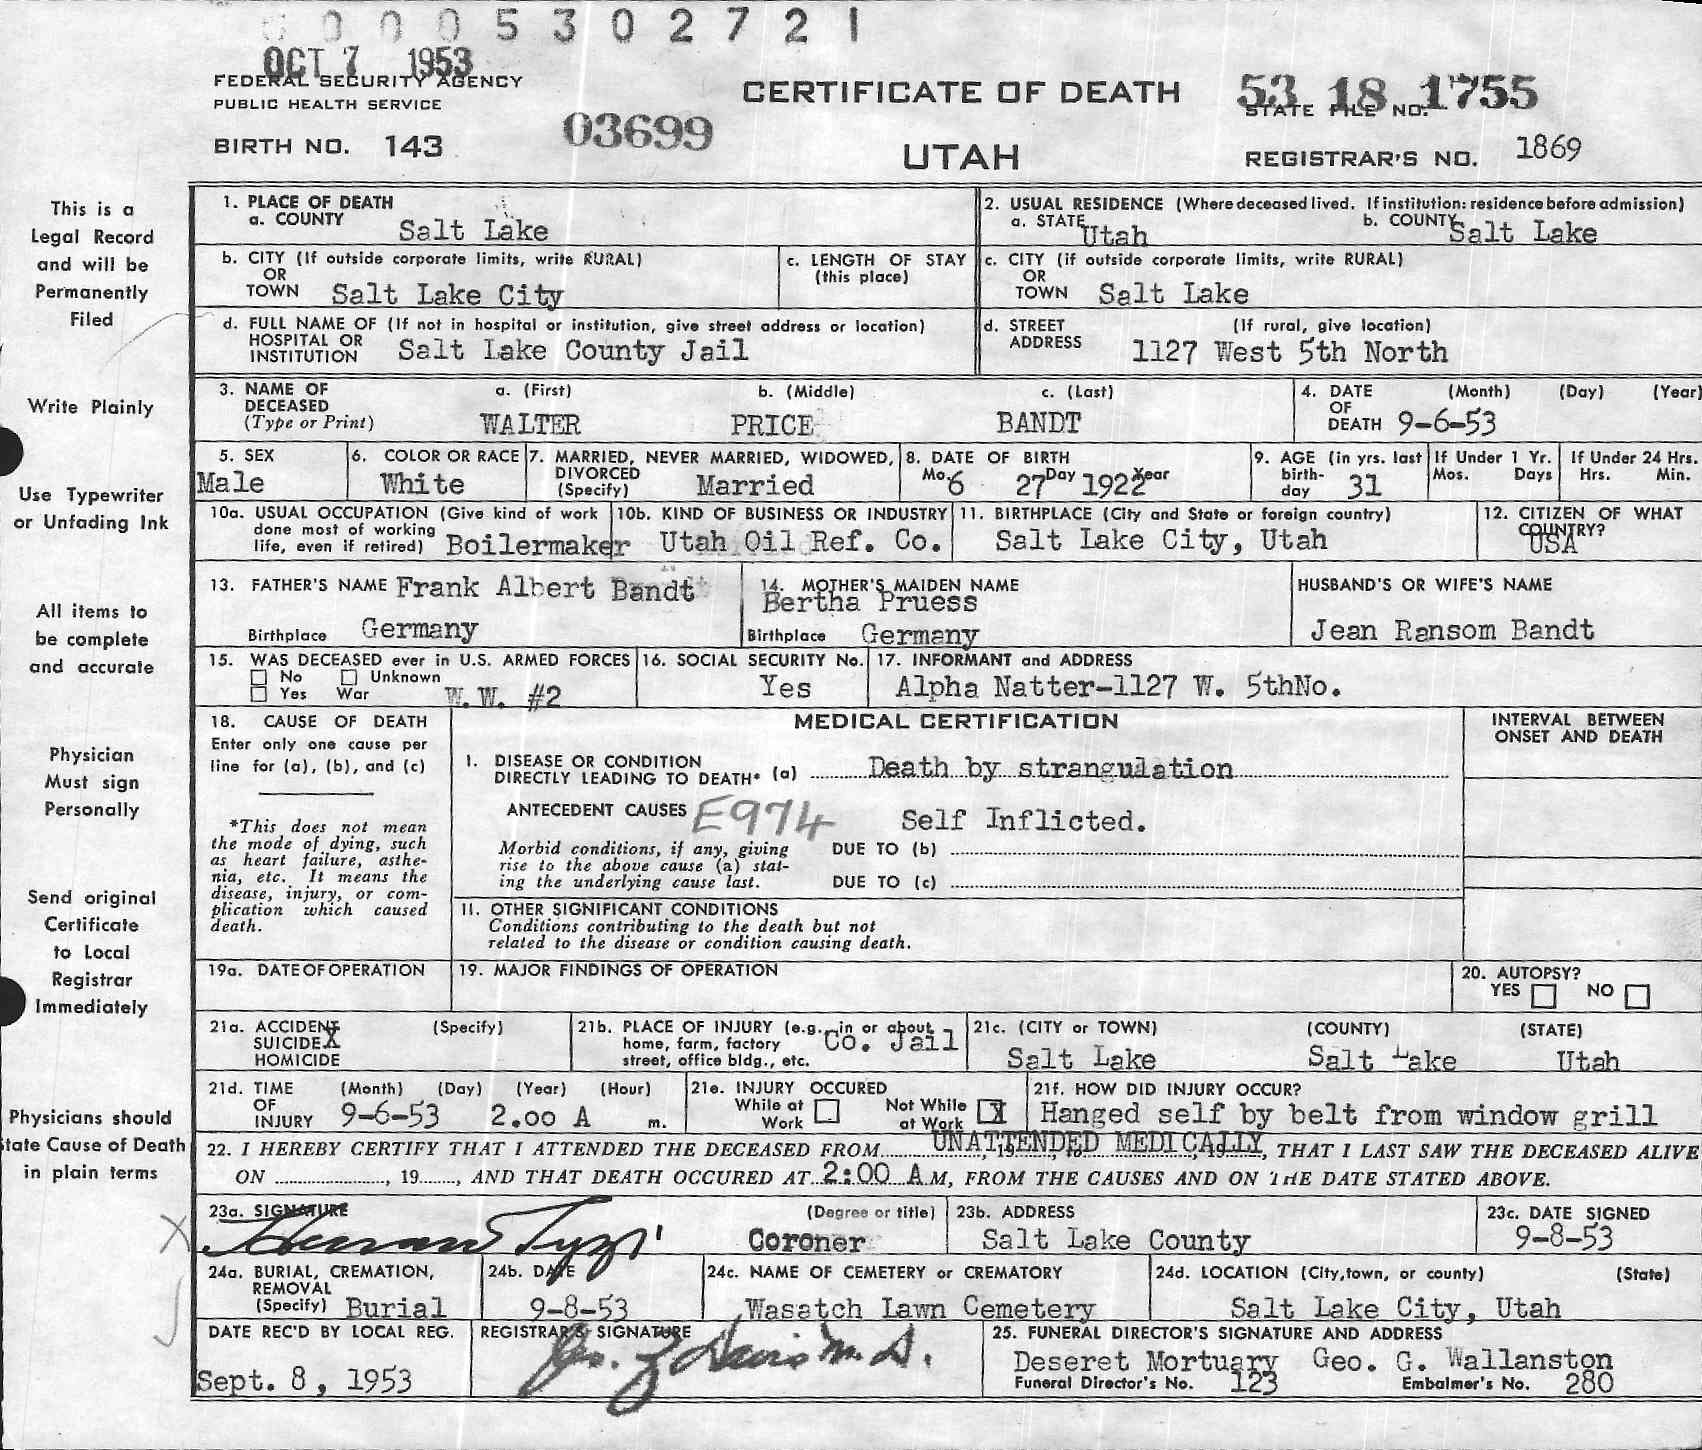 0005302721
OCT 7 1953
FEDERAL SECURITY AGENCY
PUBLIC HEALTH SERVICE
BIRTH NO. 143
03699
CERTIFICATE OF DEATH
UTAH
53 18 1755
STATE FILE NO.
REGISTRAR'S NO. 1869
This is a
Legal Record
and will be
Permanently
Filed
Write Plainly
Use Typewriter
or Unfading Ink
All items to
be complete
and accurate
Physician
Must sign
Personally
Send original
Certificate
to Local
Registrar
Immediately
Physicians should
tate Cause of Death
in plain terms
1. PLACE OF DEATH
a. COUNTY Salt Lake
2. USUAL RESIDENCE (Where deceased lived. If institution: residence before admission)
a. STATE Utah b. COUNTY Salt Lake
b. CITY (If outside corporate limits, write RURAL)
OR
TOWN Salt Lake City
c. LENGTH OF STAY
(this place)
c. CITY (if outside corporate limits, write RURAL)
OR
TOWN Salt Lake
d. FULL NAME OF (If not in hospital or institution, give street address or location)
HOSPITAL OR
INSTITUTION Salt Lake County Jail
d. STREET (If rural, give location)
ADDRESS 1127 West 5th North
3. NAME OF a. (First) b. (Middle) c. (Last)
DECEASED
(Type or Print) WALTER PRICE BANDT
4. DATE (Month) (Day) (Year)
OF
DEATH 9-6-53
5. SEX
Male
6. COLOR OR RACE
White
7. MARRIED, NEVER MARRIED, WIDOWED,
DIVORCED
(Specify) Married
8. DATE OF BIRTH
Mo. 6 27 Day 1922 Year
9. AGE (in yrs. last
birth-
day 31
If Under 1 Yr.
Mos. Days
If Under 24 Hrs.
Hrs. Min.
10a. USUAL OCCUPATION (Give kind of work
done most of working
life, even if retired) Boilermaker
10b. KIND OF BUSINESS OR INDUSTRY
Utah Oil Ref. Co.
11. BIRTHPLACE (City and State or foreign country)
Salt Lake City, Utah
12. CITIZEN OF WHAT
COUNTRY?
USA
13. FATHER'S NAME Frank Albert Bandt
Birthplace Germany
14. MOTHER'S MAIDEN NAME
Bertha Pruess
Birthplace Germany
HUSBAND'S OR WIFE'S NAME
Jean Ransom Bandt
15. WAS DECEASED ever in U.S. ARMED FORCES
No Unknown
Yes War W.W. #2
16. SOCIAL SECURITY No.
Yes
17. INFORMANT and ADDRESS
Alpha Natter-1127 W. 5thNo.
18. CAUSE OF DEATH
Enter only one cause per
line for (a), (b), and (c)
*This does not mean
the mode of dying, such
as heart failure, asthe-
nia, etc. It means the
disease, injury, or com-
plication which caused
death.
MEDICAL CERTIFICATION
INTERVAL BETWEEN
ONSET AND DEATH
I. DISEASE OR CONDITION
DIRECTLY LEADING TO DEATH* (a) Death by strangulation
ANTECEDENT CAUSES E974 Self Inflicted.
Morbid conditions, if any, giving DUE TO (b)
rise to the above cause (a) stat-
ing the underlying cause last. DUE TO (c)
11. OTHER SIGNIFICANT CONDITIONS
Conditions contributing to the death but not
related to the disease or condition causing death.
19a. DATE OF OPERATION
19. MAJOR FINDINGS OF OPERATION
20. AUTOPSY?
YES NO
21a. ACCIDENT (Specify)
SUICIDE X
HOMICIDE
21b. PLACE OF INJURY (e.g. in or about
home, farm, factory Co. Jail
street, office bldg., etc.
21c. (CITY or TOWN) (COUNTY) (STATE)
Salt Lake Salt Lake Utah
21d. TIME (Month) (Day) (Year) (Hour)
OF
INJURY 9-6-53 2.00 A m.
21e. INJURY OCCURED
While at Work Not While at Work X
21f. HOW DID INJURY OCCUR?
Hanged self by belt from window grill
22. I HEREBY CERTIFY THAT I ATTENDED THE DECEASED FROM UNATTENDED MEDICALLY, 19 to 19, THAT I LAST SAW THE DECEASED ALIVE
ON , 19 , AND THAT DEATH OCCURED AT 2:00 A M, FROM THE CAUSES AND ON THE DATE STATED ABOVE.
23a. SIGNATURE (Degree or title)
Coroner
23b. ADDRESS
Salt Lake County
23c. DATE SIGNED
9-8-53
24a. BURIAL, CREMATION,
REMOVAL
(Specify) Burial
24b. DATE
9-8-53
24c. NAME OF CEMETERY or CREMATORY
Wasatch Lawn Cemetery
24d. LOCATION (City, town, or county) (State)
Salt Lake City, Utah
DATE REC'D BY LOCAL REG.
Sept. 8, 1953
REGISTRAR'S SIGNATURE
Davis M.D.
25. FUNERAL DIRECTOR'S SIGNATURE AND ADDRESS
Deseret Mortuary Geo. G. Wallanston
Funeral Director's No. 123 Embalmer's No. 280